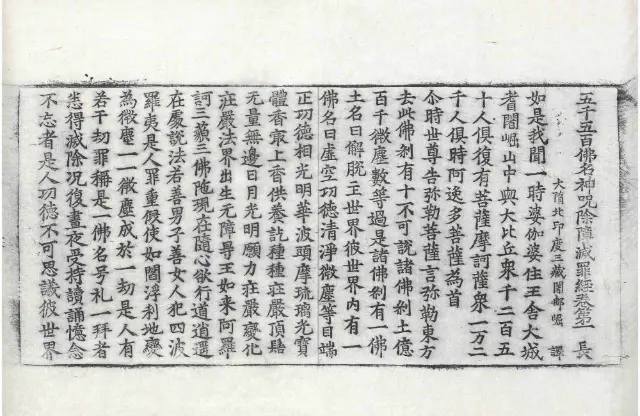 五千五百佛名神呪除障滅罪經卷第一 長
大隋北印度三藏闍那崛 譯
如是我聞一時婆伽婆住王舍大城
耆闍崛山中與大比丘衆千二百五
十人俱復有菩薩摩訶薩衆一万二
千人俱時阿逸多菩薩為首
尒時世尊告弥勒菩薩言弥勒東方
去此佛刹有十不可說諸佛刹土億
百千微塵數等過是諸佛刹有一佛
土名曰解脫主世界彼世界内有一
佛名曰虛空功德清淨微塵等目端
正功德相光明華波頭摩琉璃光寶
體香冣上香供養訖種種莊嚴頂髻
无量無邊日月光明願力莊嚴變化
莊嚴法界出生无障㝵王如来阿羅
訶三藐三佛陁現在随心欲行逍遥
在處說法若善男子善女人犯四波
羅夷是人罪重假使如閻浮利地變
為微塵一一微塵成於一劫是人有
若干劫罪稱是一佛名号礼一拜者
悉得滅除况復晝夜受持讀誦憶念
不忘者是人功德不可思議彼世界